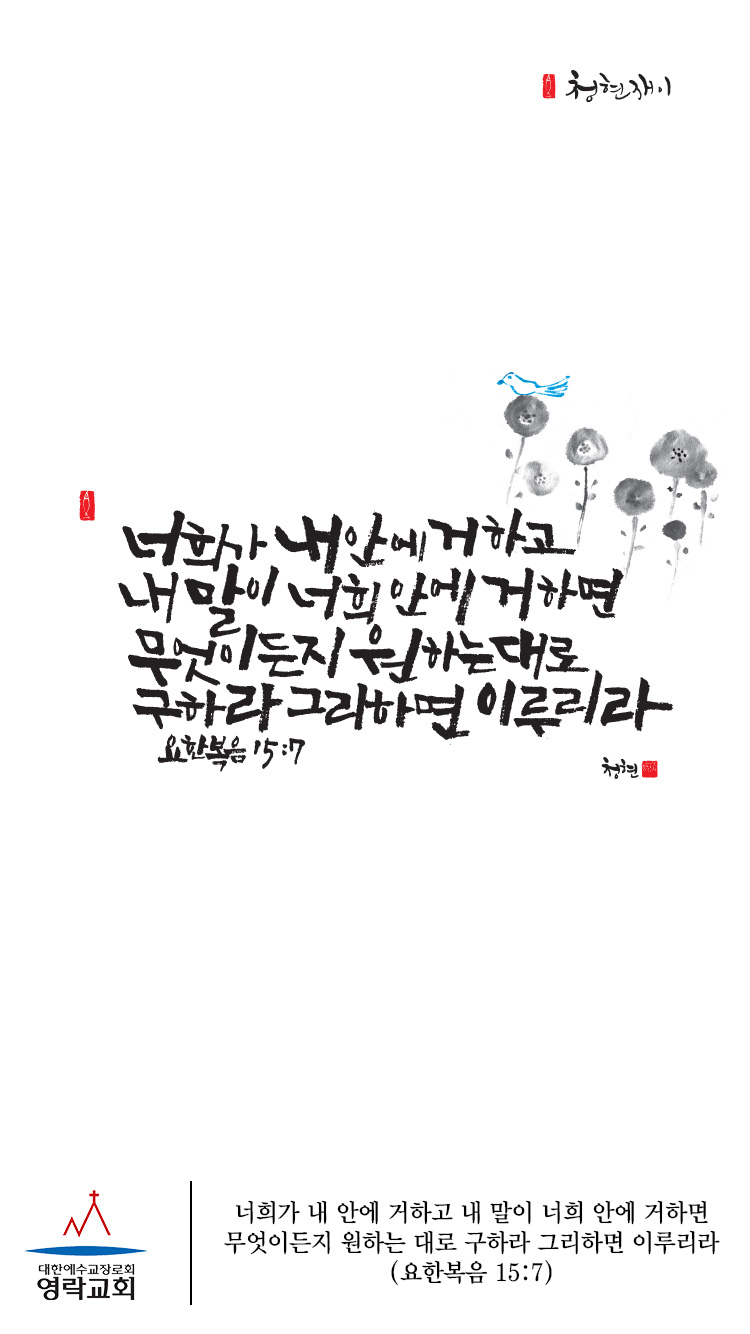 청현재이
너희가 내 안에 거하고
내 말이 너희 안에 거하면
무엇이든지 원하는대로
구하라 그리하면 이루리라
요한복음 15:7
청현
대한예수교장로회
영락교회
너희가 내 안에 거하고 내 말이 너희 안에 거하면
무엇이든지 원하는 대로 구하라 그리하면 이루리라
(요한복음 15:7)